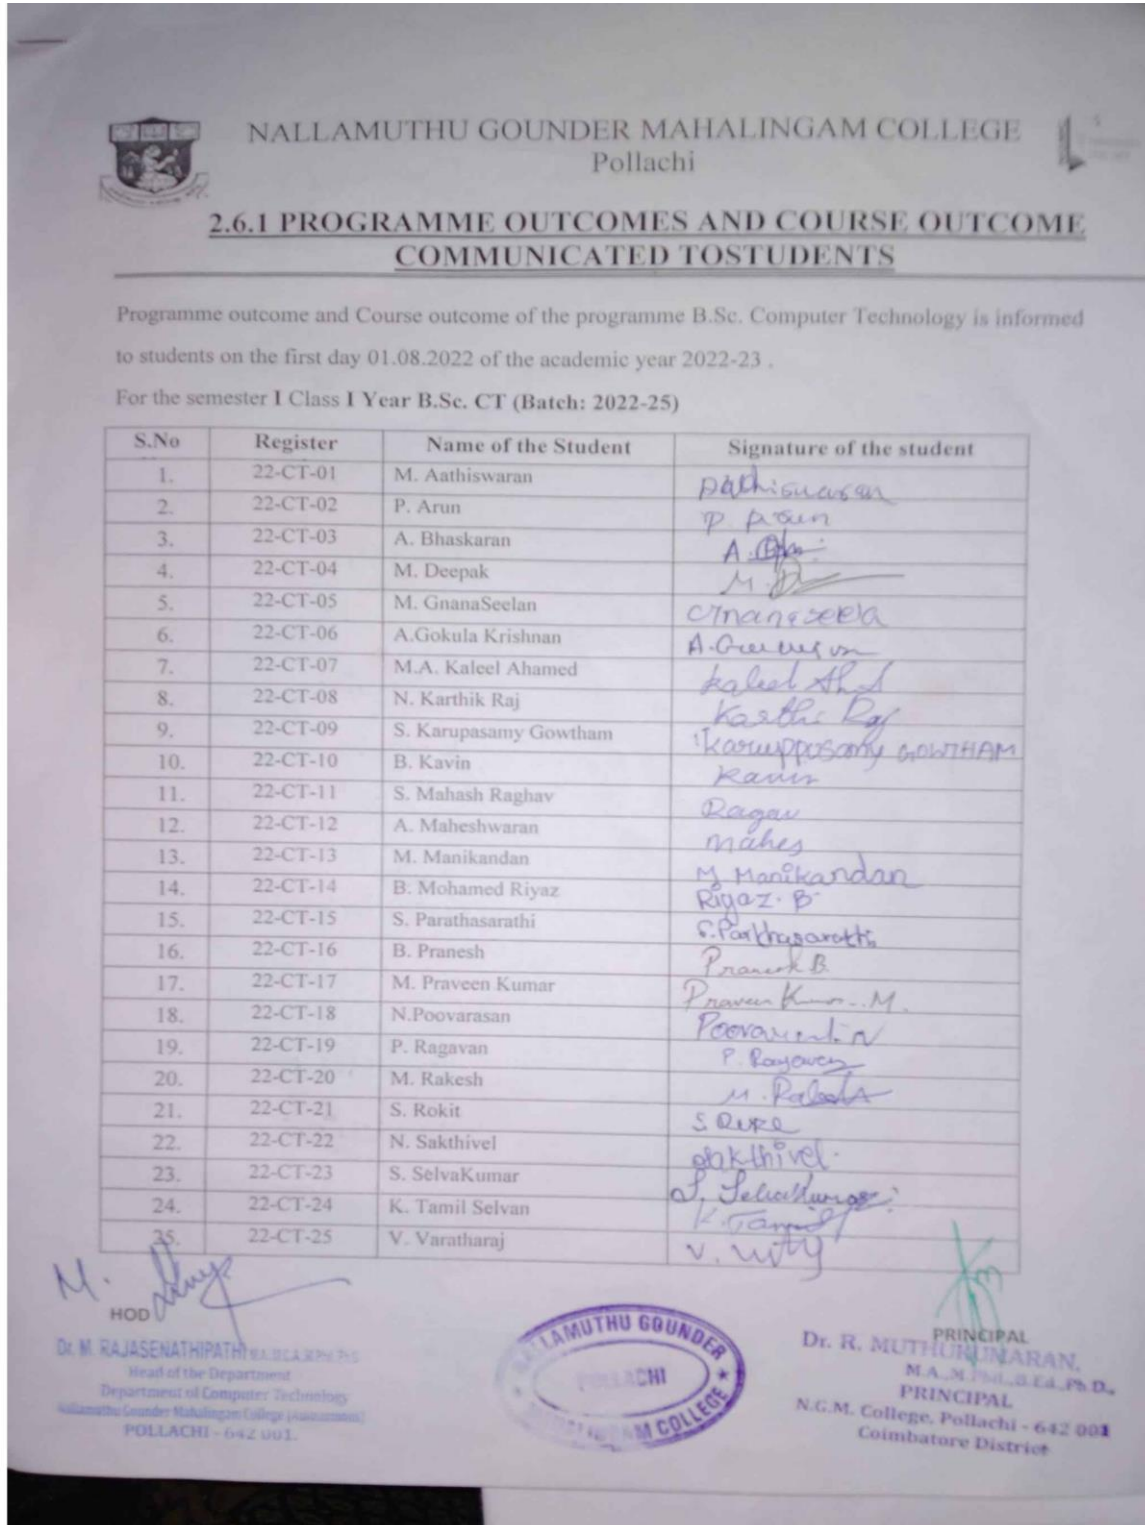 NALLAMUTHU GOUNDER MAHALINGAM COLLEGE
Pollachi
2.6.1 PROGRAMME OUTCOMES AND COURSE OUTCOME
COMMUNICATED TOSTUDENTS
Programme outcome and Course outcome of the programme B.Sc. Computer Technology is informed
to students on the first day 01.08.2022 of the academic year 2022-23 .
For the semester I Class I Year B.Sc. CT (Batch: 2022-25)
S.No Register Name of the Student Signature of the student
1. 22-CT-01 M. Aathiswaran
2. 22-CT-02 P. Arun P. Arun
3. 22-CT-03 A. Bhaskaran A.
4. 22-CT-04 M. Deepak M.
5. 22-CT-05 M. GnanaSeelan Gnanaseela
6. 22-CT-06 A.Gokula Krishnan A.
7. 22-CT-07 M.A. Kaleel Ahamed Kaleel
8. 22-CT-08 N. Karthik Raj Karthi Raj
9. 22-CT-09 S. Karupasamy Gowtham Karuppusamy GOWTHAM
10. 22-CT-10 B. Kavin Kavin
11. 22-CT-11 S. Mahash Raghav Ragav
12. 22-CT-12 A. Maheshwaran Mahes
13. 22-CT-13 M. Manikandan M Manikandan
14. 22-CT-14 B. Mohamed Riyaz Riyaz. B
15. 22-CT-15 S. Parathasarathi S.Parthasarathi
16. 22-CT-16 B. Pranesh Pranesh B.
17. 22-CT-17 M. Praveen Kumar Praveen Kumar. M.
18. 22-CT-18 N.Poovarasan
19. 22-CT-19 P. Ragavan P. Ragavan
20. 22-CT-20 M. Rakesh M. Rakesh
21. 22-CT-21 S. Rokit S.
22. 22-CT-22 N. Sakthivel Sakthivel.
23. 22-CT-23 S. SelvaKumar S. Selvakumar
24. 22-CT-24 K. Tamil Selvan K. Tamil
25. 22-CT-25 V. Varatharaj V.
M.
HOD
Dr. M. RAJASENATHIPATHI
Head of the Department
Department of Computer Technology
Nallamuthu Gounder Mahalingam College (Autonomous)
POLLACHI - 642 001.
NALLAMUTHU GOUNDER
POLLACHI
MAHALINGAM COLLEGE
PRINCIPAL
Dr. R. MUTHUKUMARAN,
M.A., M.Phil., B.Ed., Ph.D.,
PRINCIPAL
N.G.M. College, Pollachi - 642 001
Coimbatore District